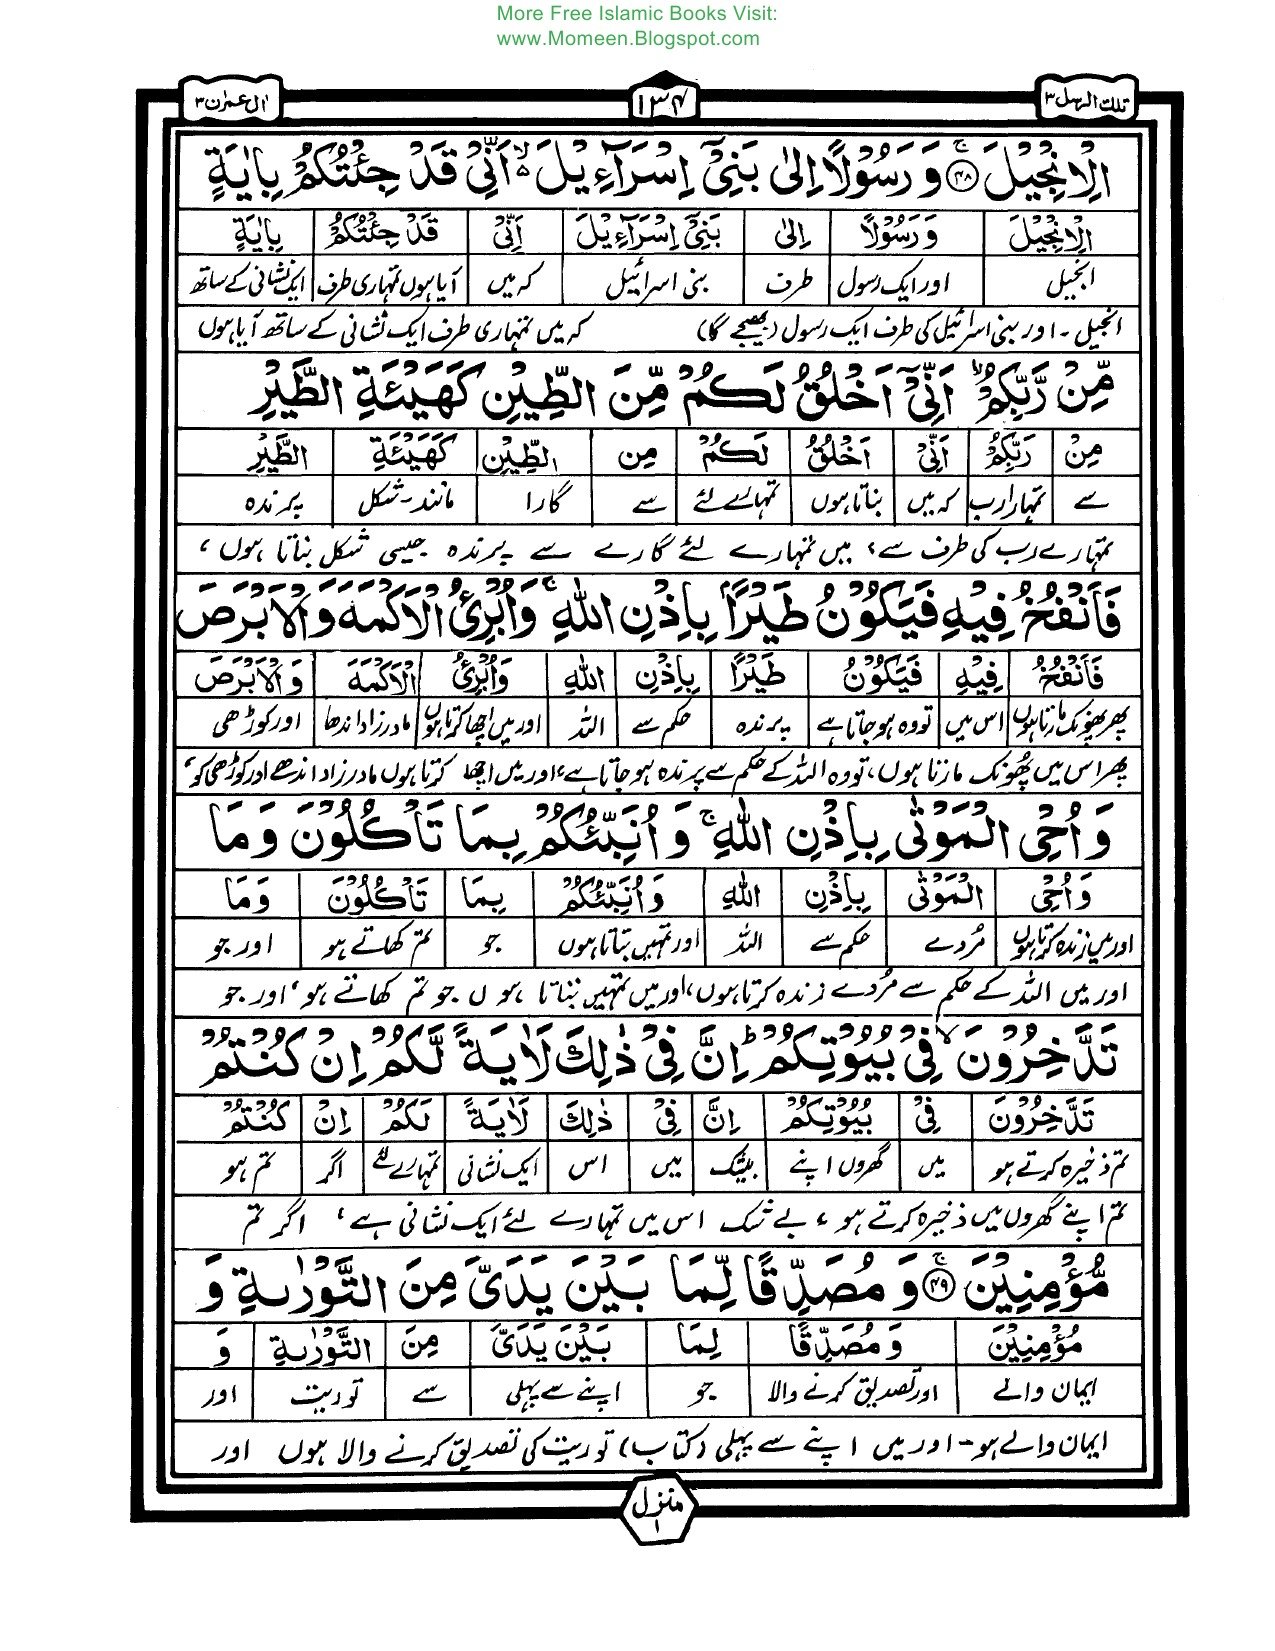 More Free Islamic Books Visit:
www.Momeen.Blogspot.com
تلك الرسل ٣ ١٣۴ اٰل عمرٰن ٣
الْاِنْجِيْلَ ۚ﴿۴۸﴾ وَ رَسُوْلًا اِلٰى بَنِيْٓ اِسْرَآءِيْلَ ۙ۬ اَنِّيْ قَدْ جِئْتُكُمْ بِاٰيَةٍ
الْاِنْجِيْلَ وَ رَسُوْلًا اِلٰى بَنِيْٓ اِسْرَآءِيْلَ اَنِّيْ قَدْ جِئْتُكُمْ بِاٰيَةٍ
انجیل اور ایک رسول طرف بنی اسرائیل کہ میں آیا ہوں تمہاری طرف ایک نشانی کے ساتھ
انجیل ۔ اور بنی اسرائیل کی طرف ایک رسول (بھیجے گا) کہ میں تمہاری طرف ایک نشانی کے ساتھ آیا ہوں
مِّنْ رَّبِّكُمْ ۙ اَنِّيْٓ اَخْلُقُ لَكُمْ مِّنَ الطِّيْنِ كَهَيْئَةِ الطَّيْرِ
مِنْ رَبِّكُمْ اَنِّيْ اَخْلُقُ لَكُمْ مِن الطِّيْنِ كَهَيْئَةِ الطَّيْرِ
سے تمہارا رب کہ میں بناتا ہوں تمہارے لئے سے گارا مانند - شکل پرندہ
تمہارے رب کی طرف سے ، میں تمہارے لئے گارے سے پرندہ جیسی شکل بناتا ہوں ،
فَاَنْفُخُ فِيْهِ فَيَكُوْنُ طَيْرًا بِاِذْنِ اللّٰهِ ۚ وَ اُبْرِئُ الْاَكْمَهَ وَ الْاَبْرَصَ
فَاَنْفُخُ فِيْهِ فَيَكُوْنُ طَيْرًا بِاِذْنِ اللّٰهِ وَ اُبْرِئُ الْاَكْمَهَ وَ الْاَبْرَصَ
پھر پھونک مارتا ہوں اس میں تو وہ ہوجاتا ہے پرندہ حکم سے اللہ اور میں اچھا کرتا ہوں مادرزاد اندھا اور کوڑھی
پھر اس میں پھونک مارتا ہوں ، تو وہ اللہ کے حکم سے پرندہ ہوجاتا ہے ، اور میں اچھا کرتا ہوں مادرزاد اندھے اور کوڑھی کو ،
وَ اُحْيِ الْمَوْتٰى بِاِذْنِ اللّٰهِ ۚ وَ اُنَبِّئُكُمْ بِمَا تَاْكُلُوْنَ وَ مَا
وَ اُحْيِ الْمَوْتٰى بِاِذْنِ اللّٰهِ وَ اُنَبِّئُكُمْ بِمَا تَاْكُلُوْنَ وَ مَا
اور میں زندہ کرتا ہوں مُردے حکم سے اللہ اور تمہیں بتاتا ہوں جو تم کھاتے ہو اور جو
اور میں اللہ کے حکم سے مُردے زندہ کرتا ہوں ، اور میں تمہیں بتاتا ہوں جو تم کھاتے ہو ، اور جو
تَدَّخِرُوْنَ ۙ فِيْ بُيُوْتِكُمْ ؕ اِنَّ فِيْ ذٰلِكَ لَاٰيَةً لَّكُمْ اِنْ كُنْتُمْ
تَدَّخِرُوْنَ فِيْ بُيُوْتِكُمْ اِنَّ فِيْ ذٰلِكَ لَاٰيَةً لَكُمْ اِنْ كُنْتُمْ
تم ذخیرہ کرتے ہو میں گھروں اپنے بیشک میں اس ایک نشانی تمہارے لئے اگر تم ہو
تم اپنے گھروں میں ذخیرہ کرتے ہو ، بے شک اس میں تمہارے لئے ایک نشانی ہے ، اگر تم
مُّؤْمِنِيْنَ ۚ﴿۴۹﴾ وَ مُصَدِّقًا لِّمَا بَيْنَ يَدَيَّ مِنَ التَّوْرٰىةِ وَ
مُؤْمِنِيْنَ وَ مُصَدِّقًا لِمَا بَيْنَ يَدَيَّ مِنَ التَّوْرٰىةِ وَ
ایمان والے اور تصدیق کرنے والا جو اپنے سے پہلی سے توریت اور
ایمان والے ہو - اور میں اپنے سے پہلی (کتاب) توریت کی تصدیق کرنے والا ہوں اور
منزل ١